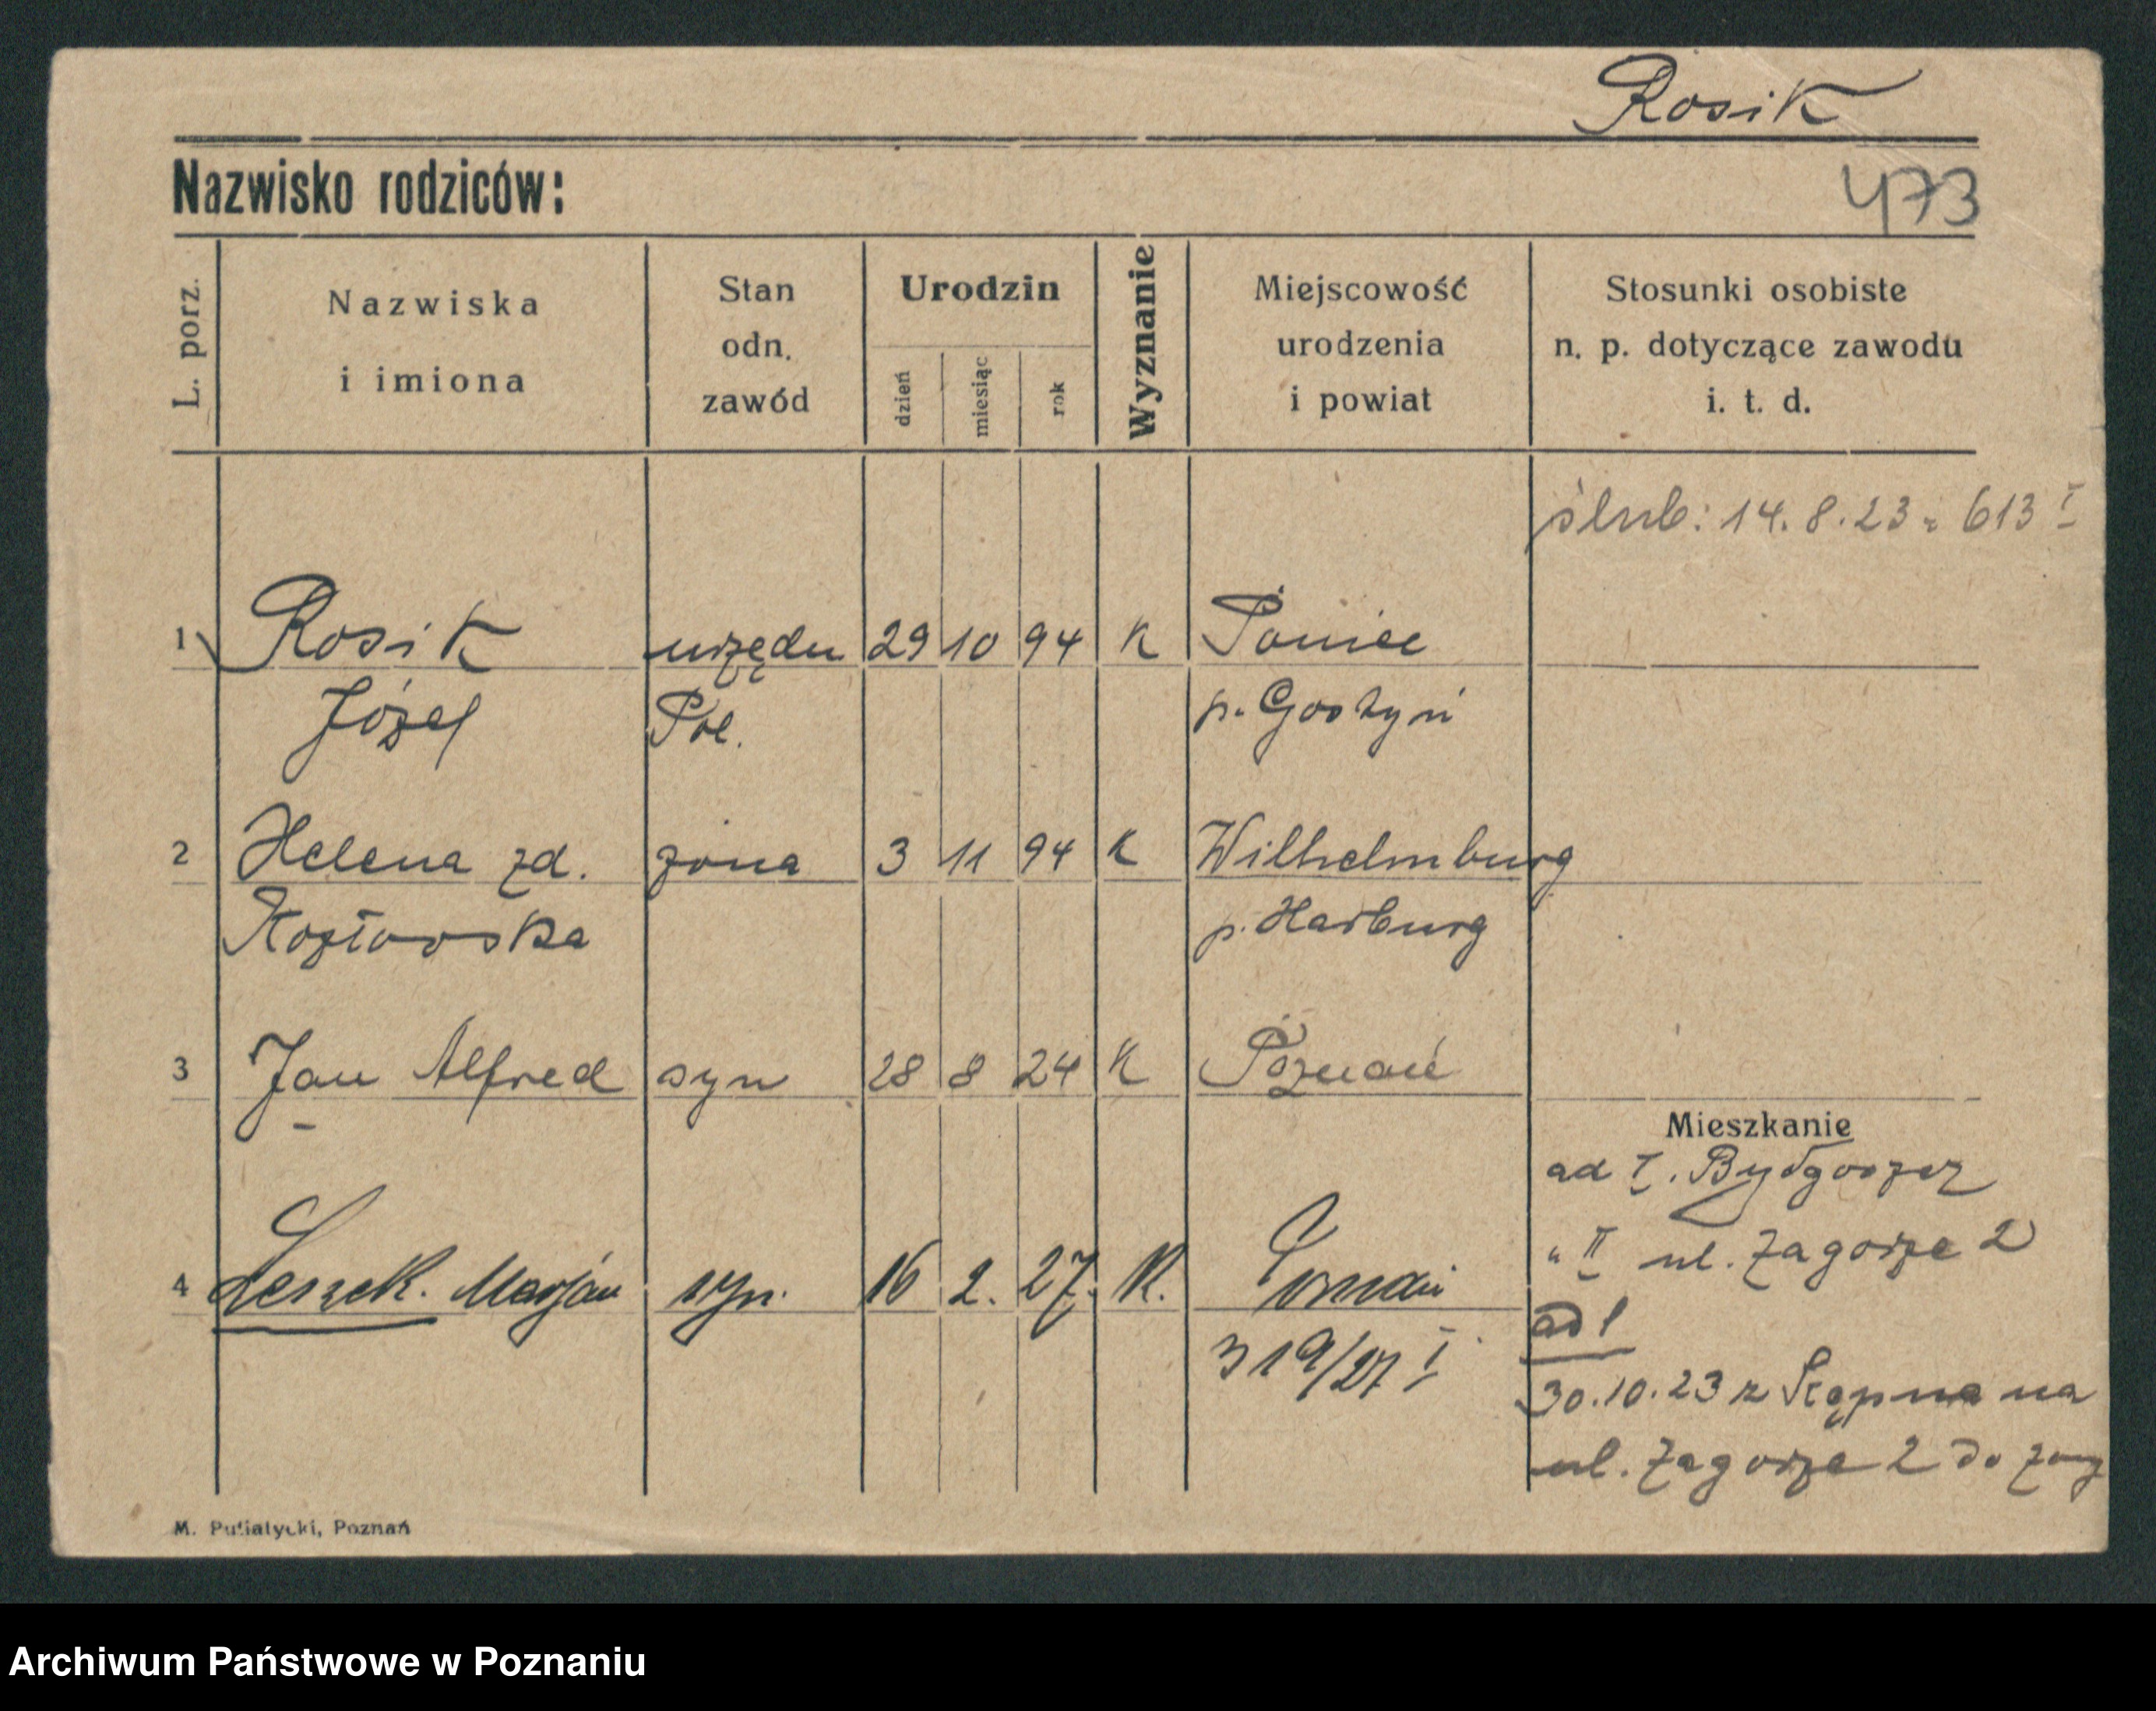 Rosik
Nazwisko rodziców:
473
L. porz.
Nazwiska
i imiona
Stan
odn.
zawód
Urodzin
dzień
miesiąc
rok
Wyznanie
Miejscowość
urodzenia
i powiat
Stosunki osobiste
n. p. dotyczące zawodu
i. t. d.
ślub: 14.8.23 613 I
1 Rosik urzędn 29 10 94 K Poniec
Józef Pol. p. Gostyń
2 Helena zd. żona 3 11 94 K Wilhelmburg
Kozłowska p. Harburg
3 Jan Alfred syn 28 8 24 K Poznań
Mieszkanie
ad I. Bydgoszcz
" II ul. Zagórze 2
4 Leszek. Marjan syn. 16 2. 27. K. Poznań
ad 1
319/27 I
30.10.23 z Kępna na
ul. Zagórze 2 do żony
M. Putiatycki, Poznań
Archiwum Państwowe w Poznaniu